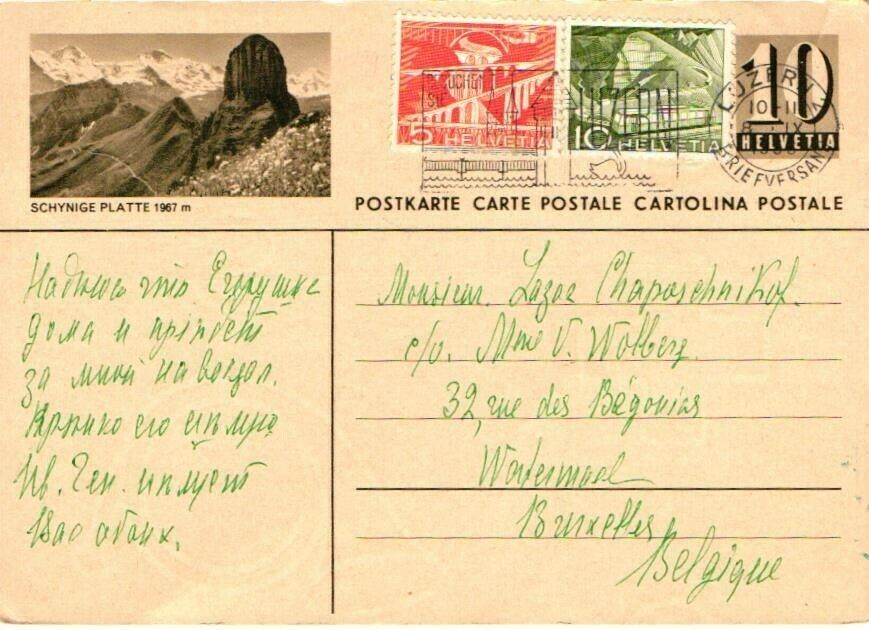 SCHYNIGE PLATTE 1967 m
5
HELVETIA
10
HELVETIA
LUZERN
LUZERN
10-11
BRIEFVERSAND
10
HELVETIA
POSTKARTE CARTE POSTALE CARTOLINA POSTALE
Надѣюсь что Егорушка
дома и пріѣдетъ
за мной на вокзал.
Крѣпко его цѣлую
Ив. Ген. цѣлуетъ
Вас обоих.
Monsieur Lazar Chaposchnikof.
c/o. Mme V. Wolberg
32, rue des Bégonias
Watermael
Bruxelles
Belgique